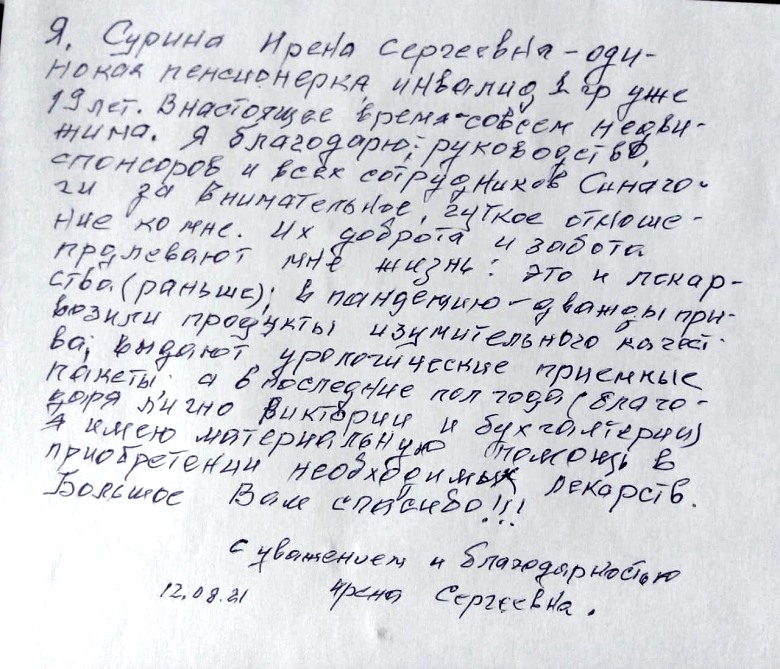 Я, Сурина Ирена Сергеевна - оди-
нокая пенсионерка, инвалид 1 гр уже
19 лет. В настоящее время - совсем недви-
жима. Я благодарю; руководство,
спонсоров и всех сотрудников Синаго-
ги за внимательное, чуткое отноше-
ние ко мне. Их доброта и забота
продлевают мне жизнь: это и лекар-
ства (раньше); в пандемию - дважды при-
возили продукты изумительного качест-
ва; выдают урологические приемные
пакеты. а в последние пол года (благо-
даря лично Виктории и бухгалтерии)
я имею материальную помощь в
приобретении необходимых лекарств.
Большое Вам спасибо!!!
с уважением и благодарностью
12.08.21 Ирена Сергеевна.